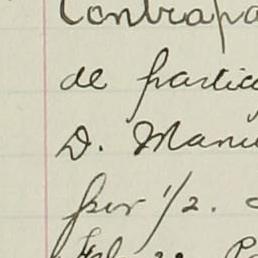 Contrapa
de partic
D. Manu
por 1/2.